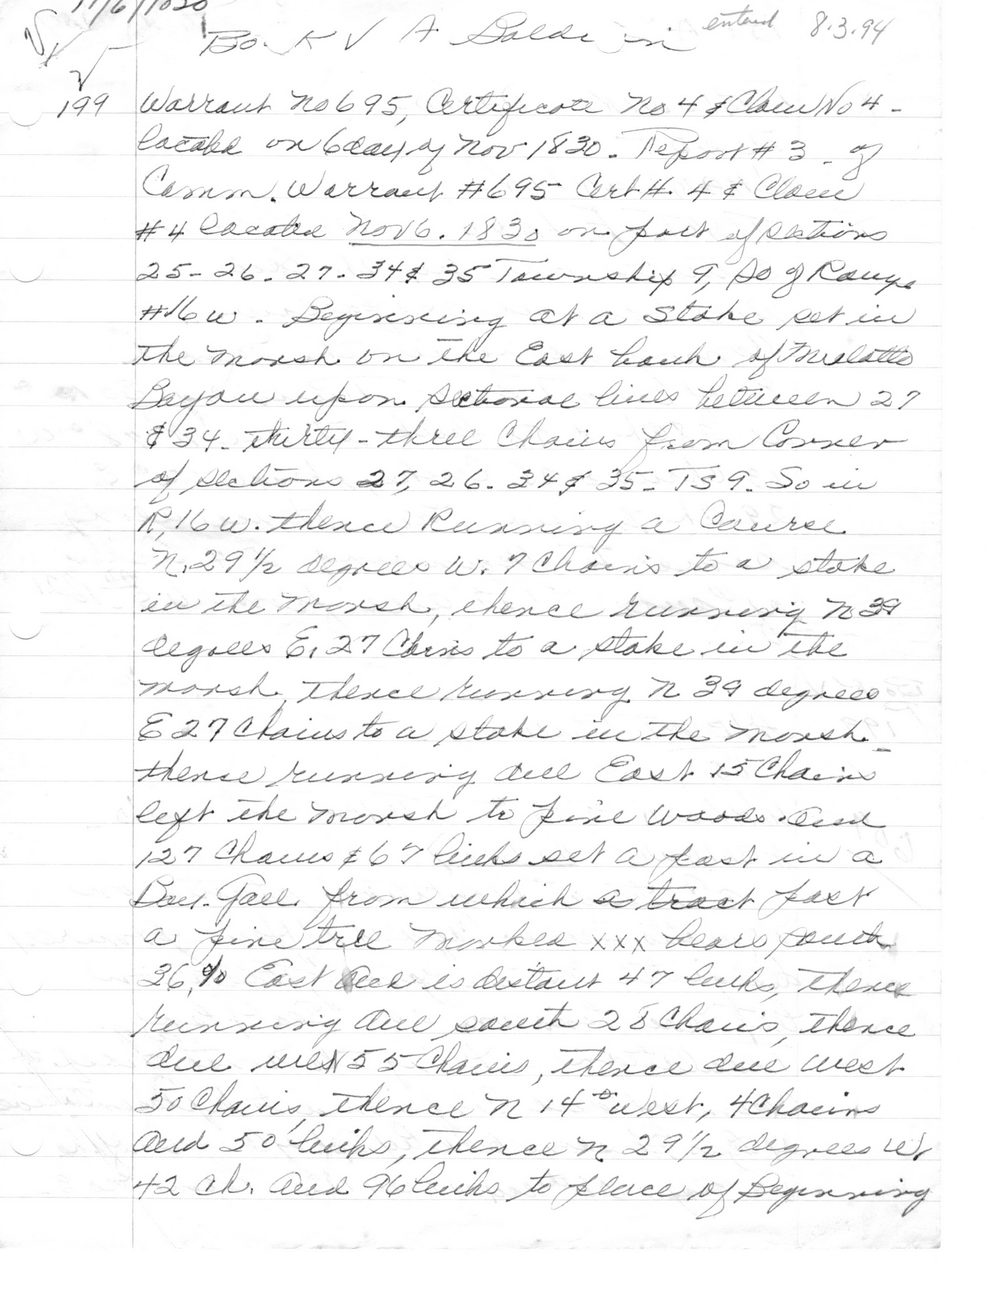 11/6/1830
entered 8.3.94
Book V A
199 Warrant No 695, Certificate No 4 & Claim No 4 -
located on 6 day of Nov 1830 - Report # 3 - of
Comm. Warrant # 695 Cert #. 4 & Claim
#4 located Nov 6. 1830 on part of sections
25 - 26 - 27 - 34 & 35 Township 9, So of Range
#16 W - Beginning at a Stake set in
the Marsh on the East bank of Mulatto
Bayou upon sectional lines between 27
& 34 - thirty-three Chains from Corner
of sections 27, 26 - 34 & 35 - TS 9. So in
R, 16 W. thence Running a Course
N. 29 1/2 degrees W. 7 Chains to a stake
in the Marsh, thence running N 39
degrees E, 27 Chains to a stake in the
marsh, thence running N 39 degrees
E 27 Chains to a stake in the Marsh -
thence running due East 15 Chains
left the Marsh to pine woods. and
127 Chains & 67 links set a post in a
Bay-Gall from which a tract post
a pine tree marked xxx bears south
36 % East and is distant 47 links, thence
running due south 28 Chains, thence
due west 55 Chains, thence due west
50 Chains, thence N 14° West, 4 Chains
and 50 links, thence N 29 1/2 degrees W
42 Ch. and 96 links to place of Beginning